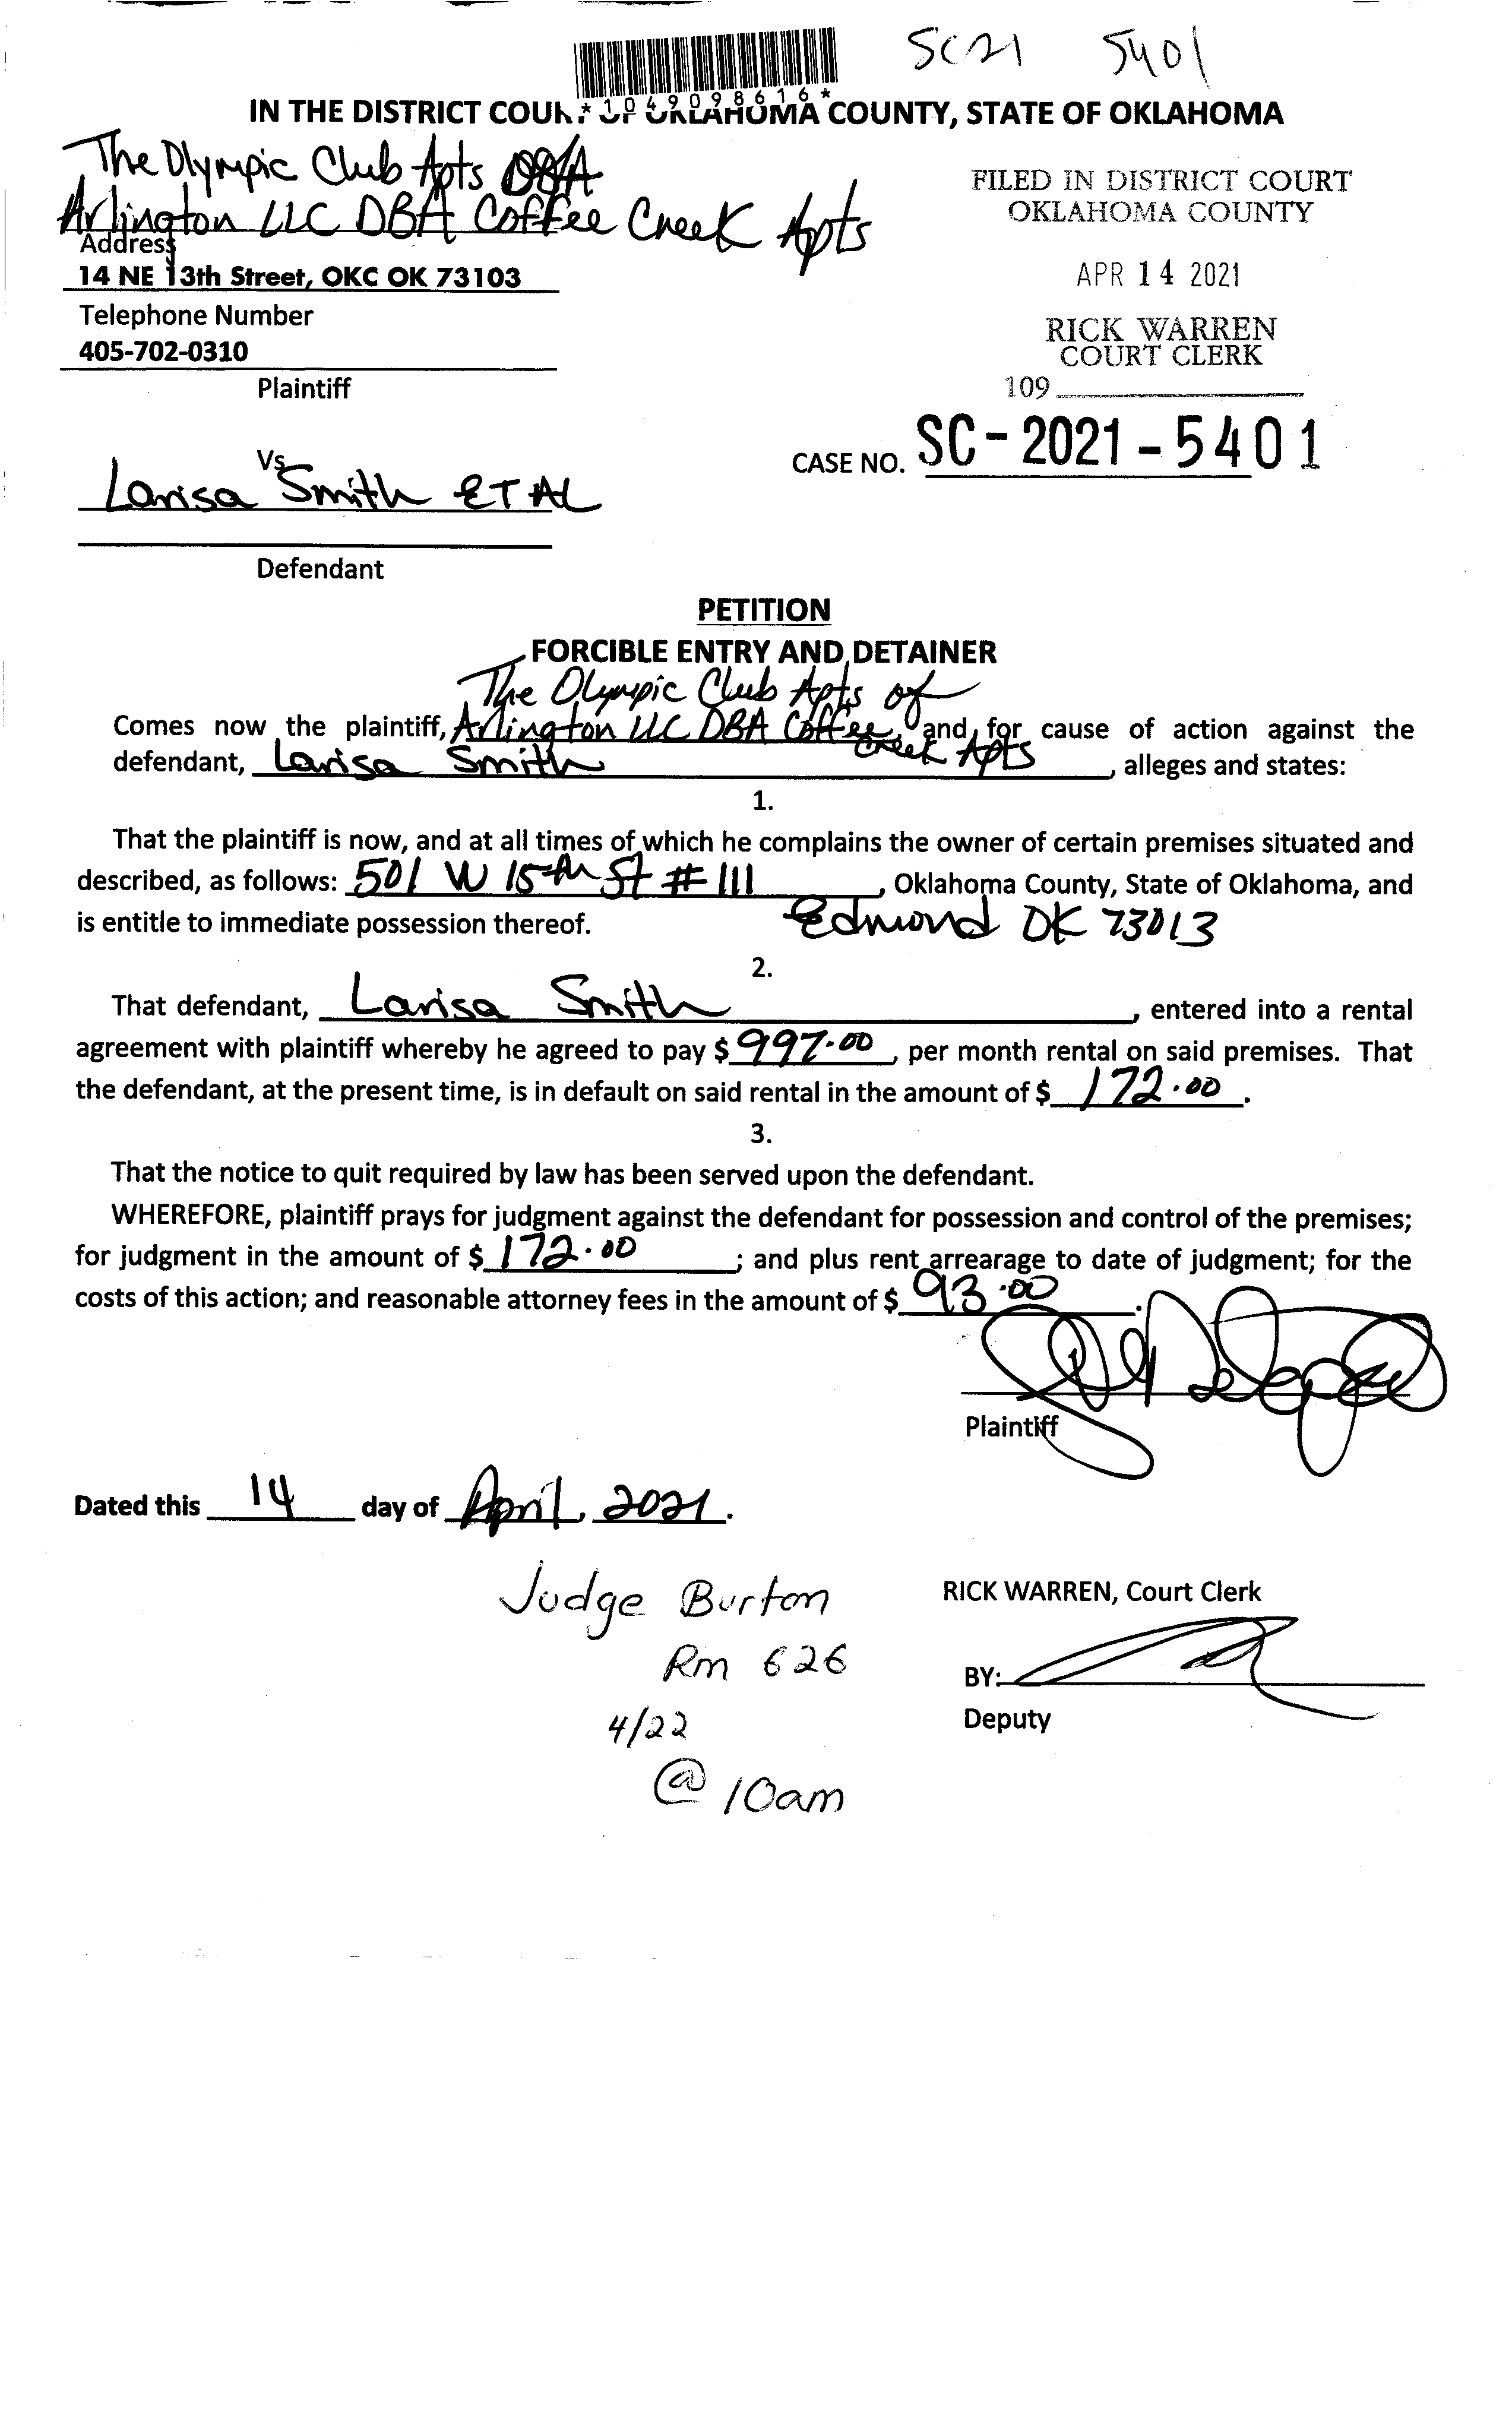 SC21 5401
*1049098616*
IN THE DISTRICT COURT OF OKLAHOMA COUNTY, STATE OF OKLAHOMA
The Olympic Club Apts
Arlington LLC DBA Coffee Creek Apts
Address
14 NE 13th Street, OKC OK 73103
Telephone Number
405-702-0310
Plaintiff
FILED IN DISTRICT COURT
OKLAHOMA COUNTY
APR 14 2021
RICK WARREN
COURT CLERK
109
CASE NO. SC-2021-5401
Vs
Larisa Smith ET AL
Defendant
PETITION
FORCIBLE ENTRY AND DETAINER
The Olympic Club Apts of
Comes now the plaintiff, Arlington LLC DBA Coffee Creek Apts, and for cause of action against the
defendant, Larisa Smith, alleges and states:
1.
That the plaintiff is now, and at all times of which he complains the owner of certain premises situated and
described, as follows: 501 W 15th St #111, Oklahoma County, State of Oklahoma, and
is entitle to immediate possession thereof. Edmond OK 73013
2.
That defendant, Larisa Smith, entered into a rental
agreement with plaintiff whereby he agreed to pay $ 997.00, per month rental on said premises. That
the defendant, at the present time, is in default on said rental in the amount of $ 172.00.
3.
That the notice to quit required by law has been served upon the defendant.
WHEREFORE, plaintiff prays for judgment against the defendant for possession and control of the premises;
for judgment in the amount of $ 172.00; and plus rent arrearage to date of judgment; for the
costs of this action; and reasonable attorney fees in the amount of $ 93.00.
Plaintiff
Dated this 14 day of April, 2021.
Judge Burton
Rm 626
4/22
@ 10am
RICK WARREN, Court Clerk
BY:
Deputy